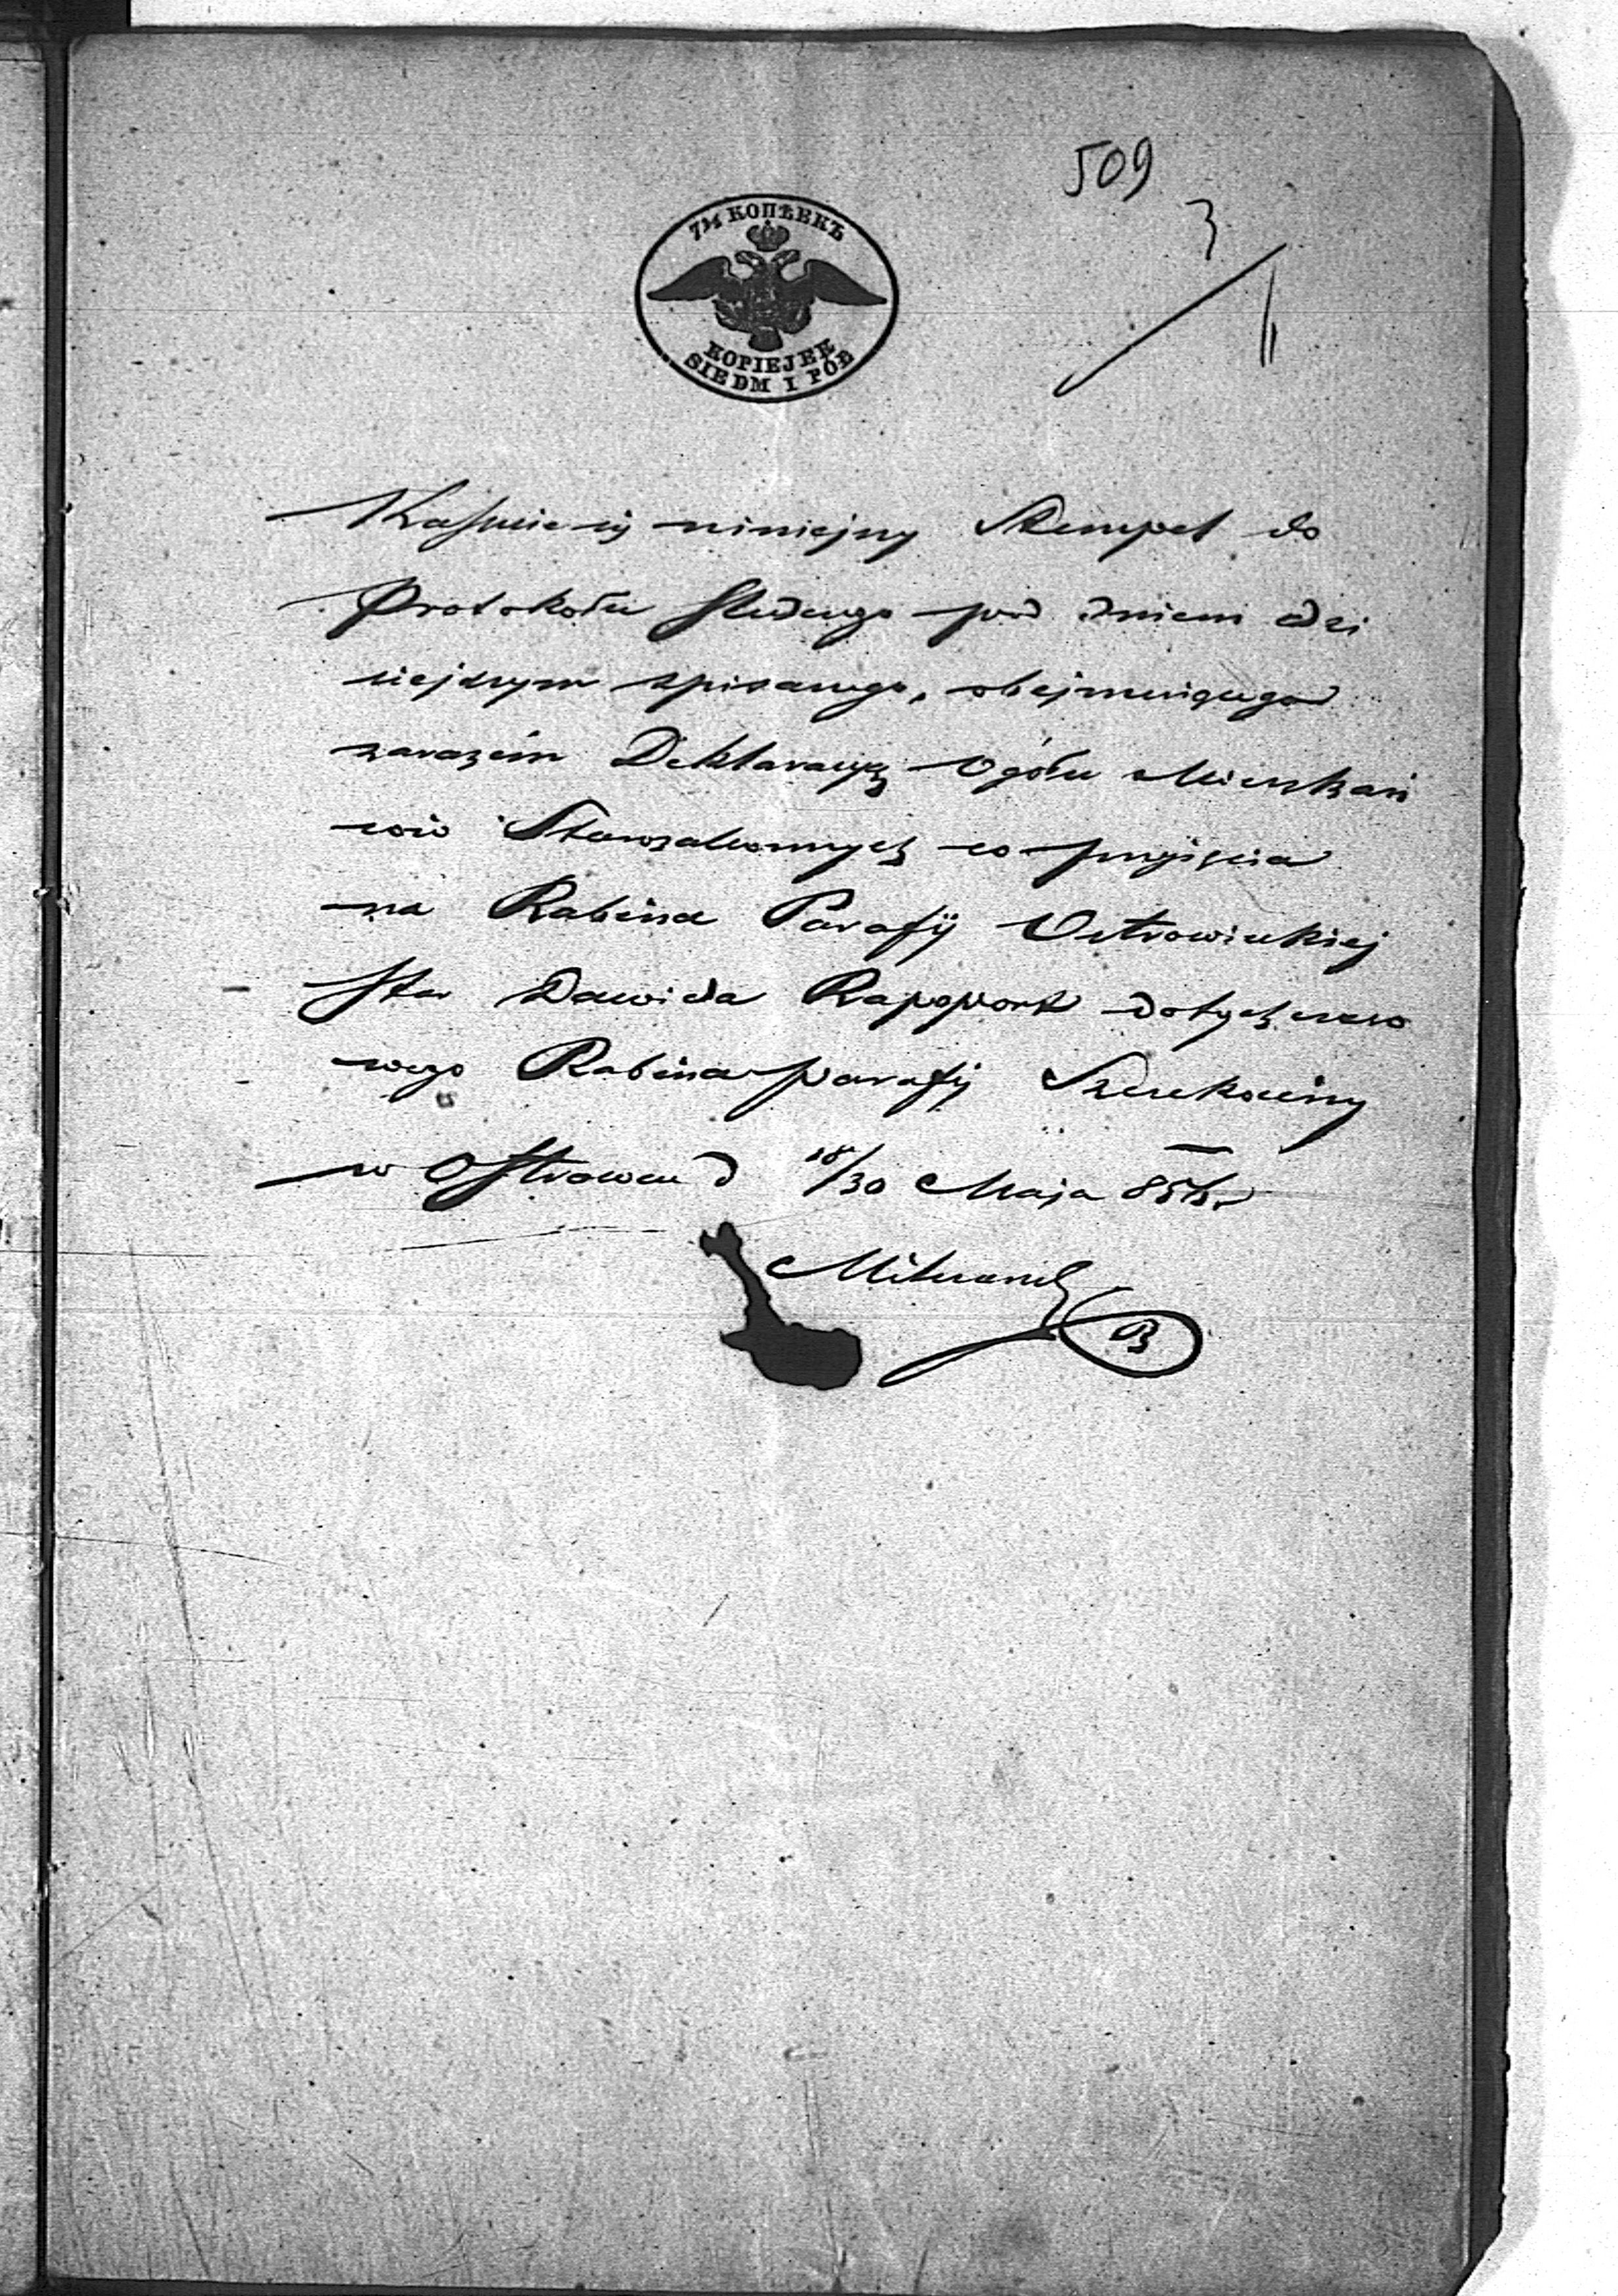 509
3
7½ КОПѢЕКЪ
KOPIEJEK
SIEDM I PÓŁ
Kassuie się niniejszy Stempel do
Protokółu śledczego pod dniem dzi
siejszym spisanego, obejmuiącego
zarazem Deklaracyę Ogółu Mieszkań
ców Starozakonnych co przyięcia
na Rabina Parafij Ostrowieckiej
Star Dawida Rapoport dotychczaso
wego Rabina parafij Szczekociny
w Ostrowcu d 18/30 Maja